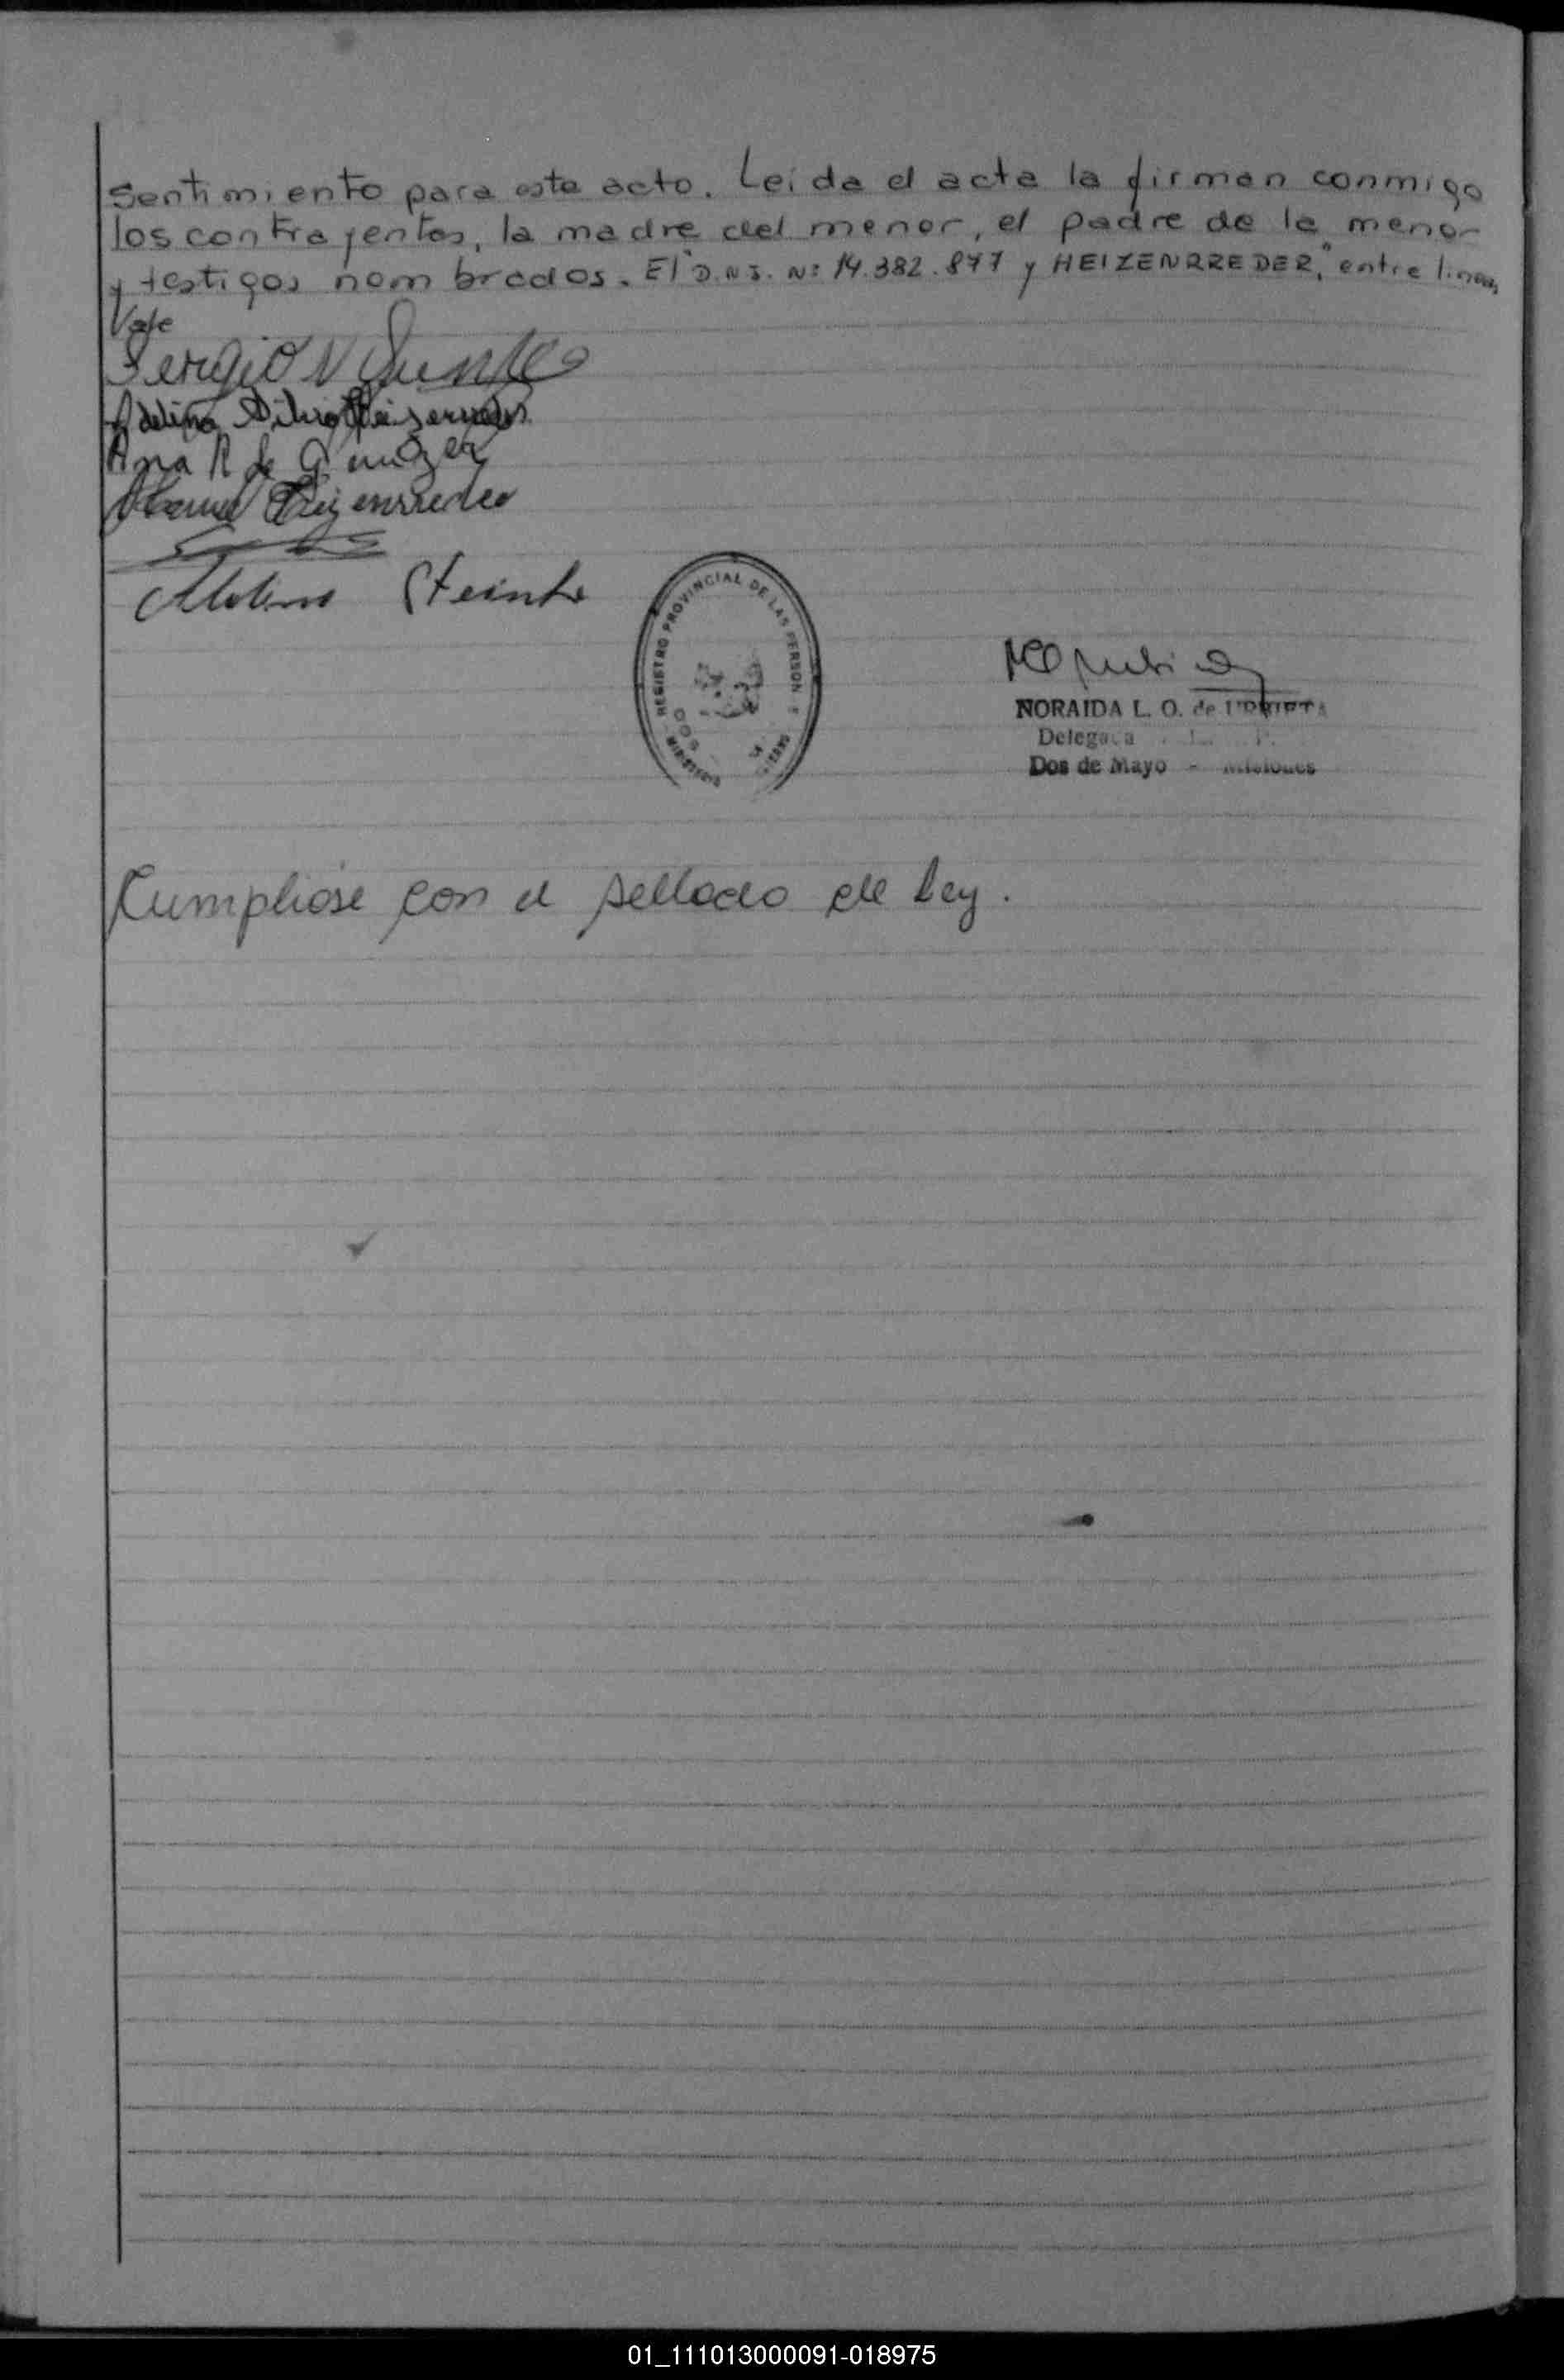 sentimiento para este acto. Leida el acta la firman conmigo
los contrayentes, la madre del menor, el padre de la menor
y testigos nombrados. El "D.N.I. Nº 14.382.877 y HEIZENRREDER," entre lineas
Vale
Sergio N
Adelina
Ana R de
Steinke
REGISTRO PROVINCIAL DE LAS PERSON
DOS
MINISTERIO
NORAIDA L. O. de URRIETA
Delegada
Dos de Mayo - Misiones
Cumplióse con el sellado de ley.
01_111013000091-018975